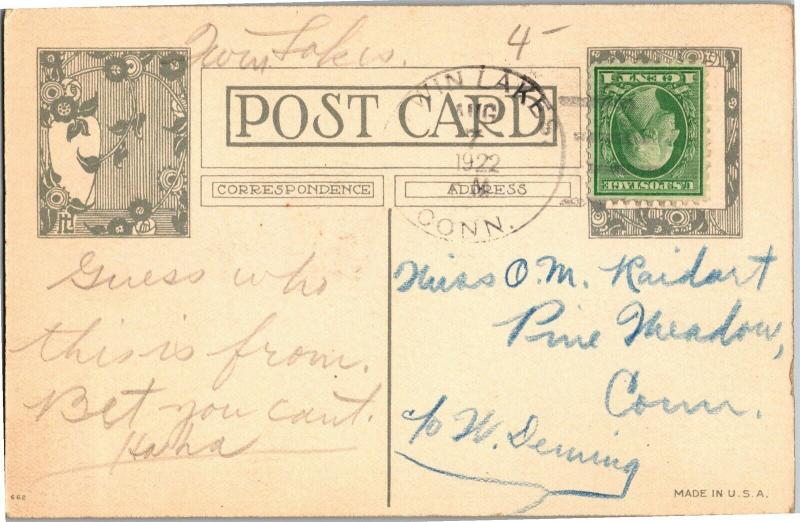 Twin Lakes. 4-
POST CARD
TWIN LAKES
AUG
7
1922
M
CONN.
1 CENT 1
U.S. POSTAGE
CORRESPONDENCE
ADDRESS
Guess who
this is from.
Bet you cant.
Haha
Miss O.M. Raidart
Pine Meadow,
Conn.
c/o W. Deming
662
MADE IN U.S.A.